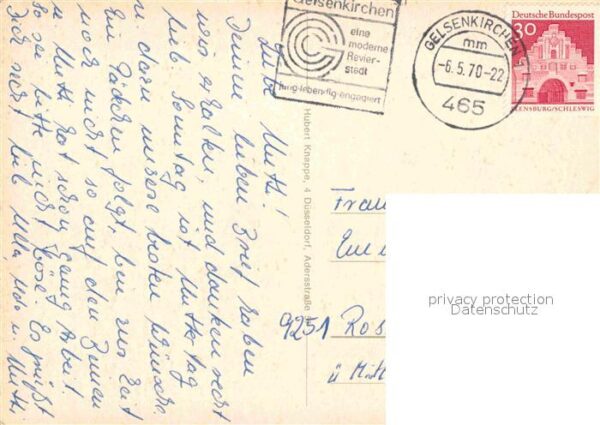 Liebe Mutti!
Deinen lieben Brief haben
wir erhalten, und danken recht
lieb. Sonntag ist Muttertag
u. dazu unsere besten Wünsche.
Ein Päckchen folgt, bin zur Zeit
noch nicht so auf den Beinen
u. Mutti hat schon genug Arbeit.
So sei bitte nicht böse. Es grüßt
Dich recht lieb u. Mutti.
Gelsenkirchen
eine
moderne
Revier-
stadt
jung·lebendig·engagiert
GELSENKIRCHEN 1
mm
-6.5.70-22
465
Deutsche Bundespost
30
FLENSBURG/SCHLESWIG
Hubert Knappe, 4 Düsseldorf, Adersstraße
Frau
9251 Ros
privacy protection
Datenschutz